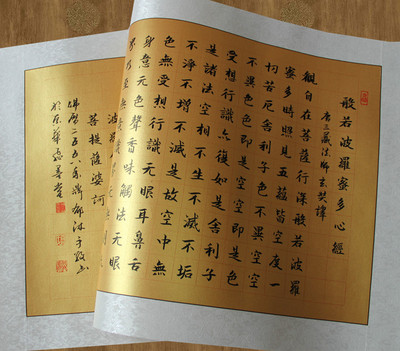 般若波羅蜜多心經
唐三藏法師玄奘譯
觀自在菩薩行深般若波羅
蜜多時照見五蘊皆空度一
切苦厄舍利子色不異空空
不異色色即是空空即是色
受想行識亦復如是舍利子
是諸法空相不生不滅不垢
不淨不增不減是故空中無
色無受想行識無眼耳鼻舌
身意無色聲香味觸法無眼
波羅
菩提薩婆訶
佛曆二五五六年
沐手敬書
於